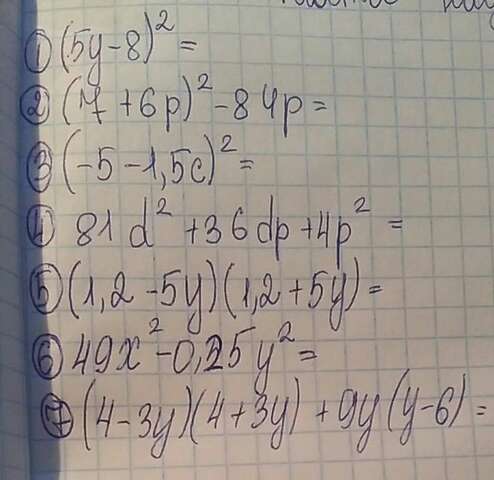 ① (5y-8)² =
② (7+6p)² - 84p =
③ (-5-1,5c)² =
④ 81d² + 36dp + 4p² =
⑤ (1,2-5y)(1,2+5y) =
⑥ 49x² - 0,25y² =
⑦ (4-3y)(4+3y) + 9y(y-6) =